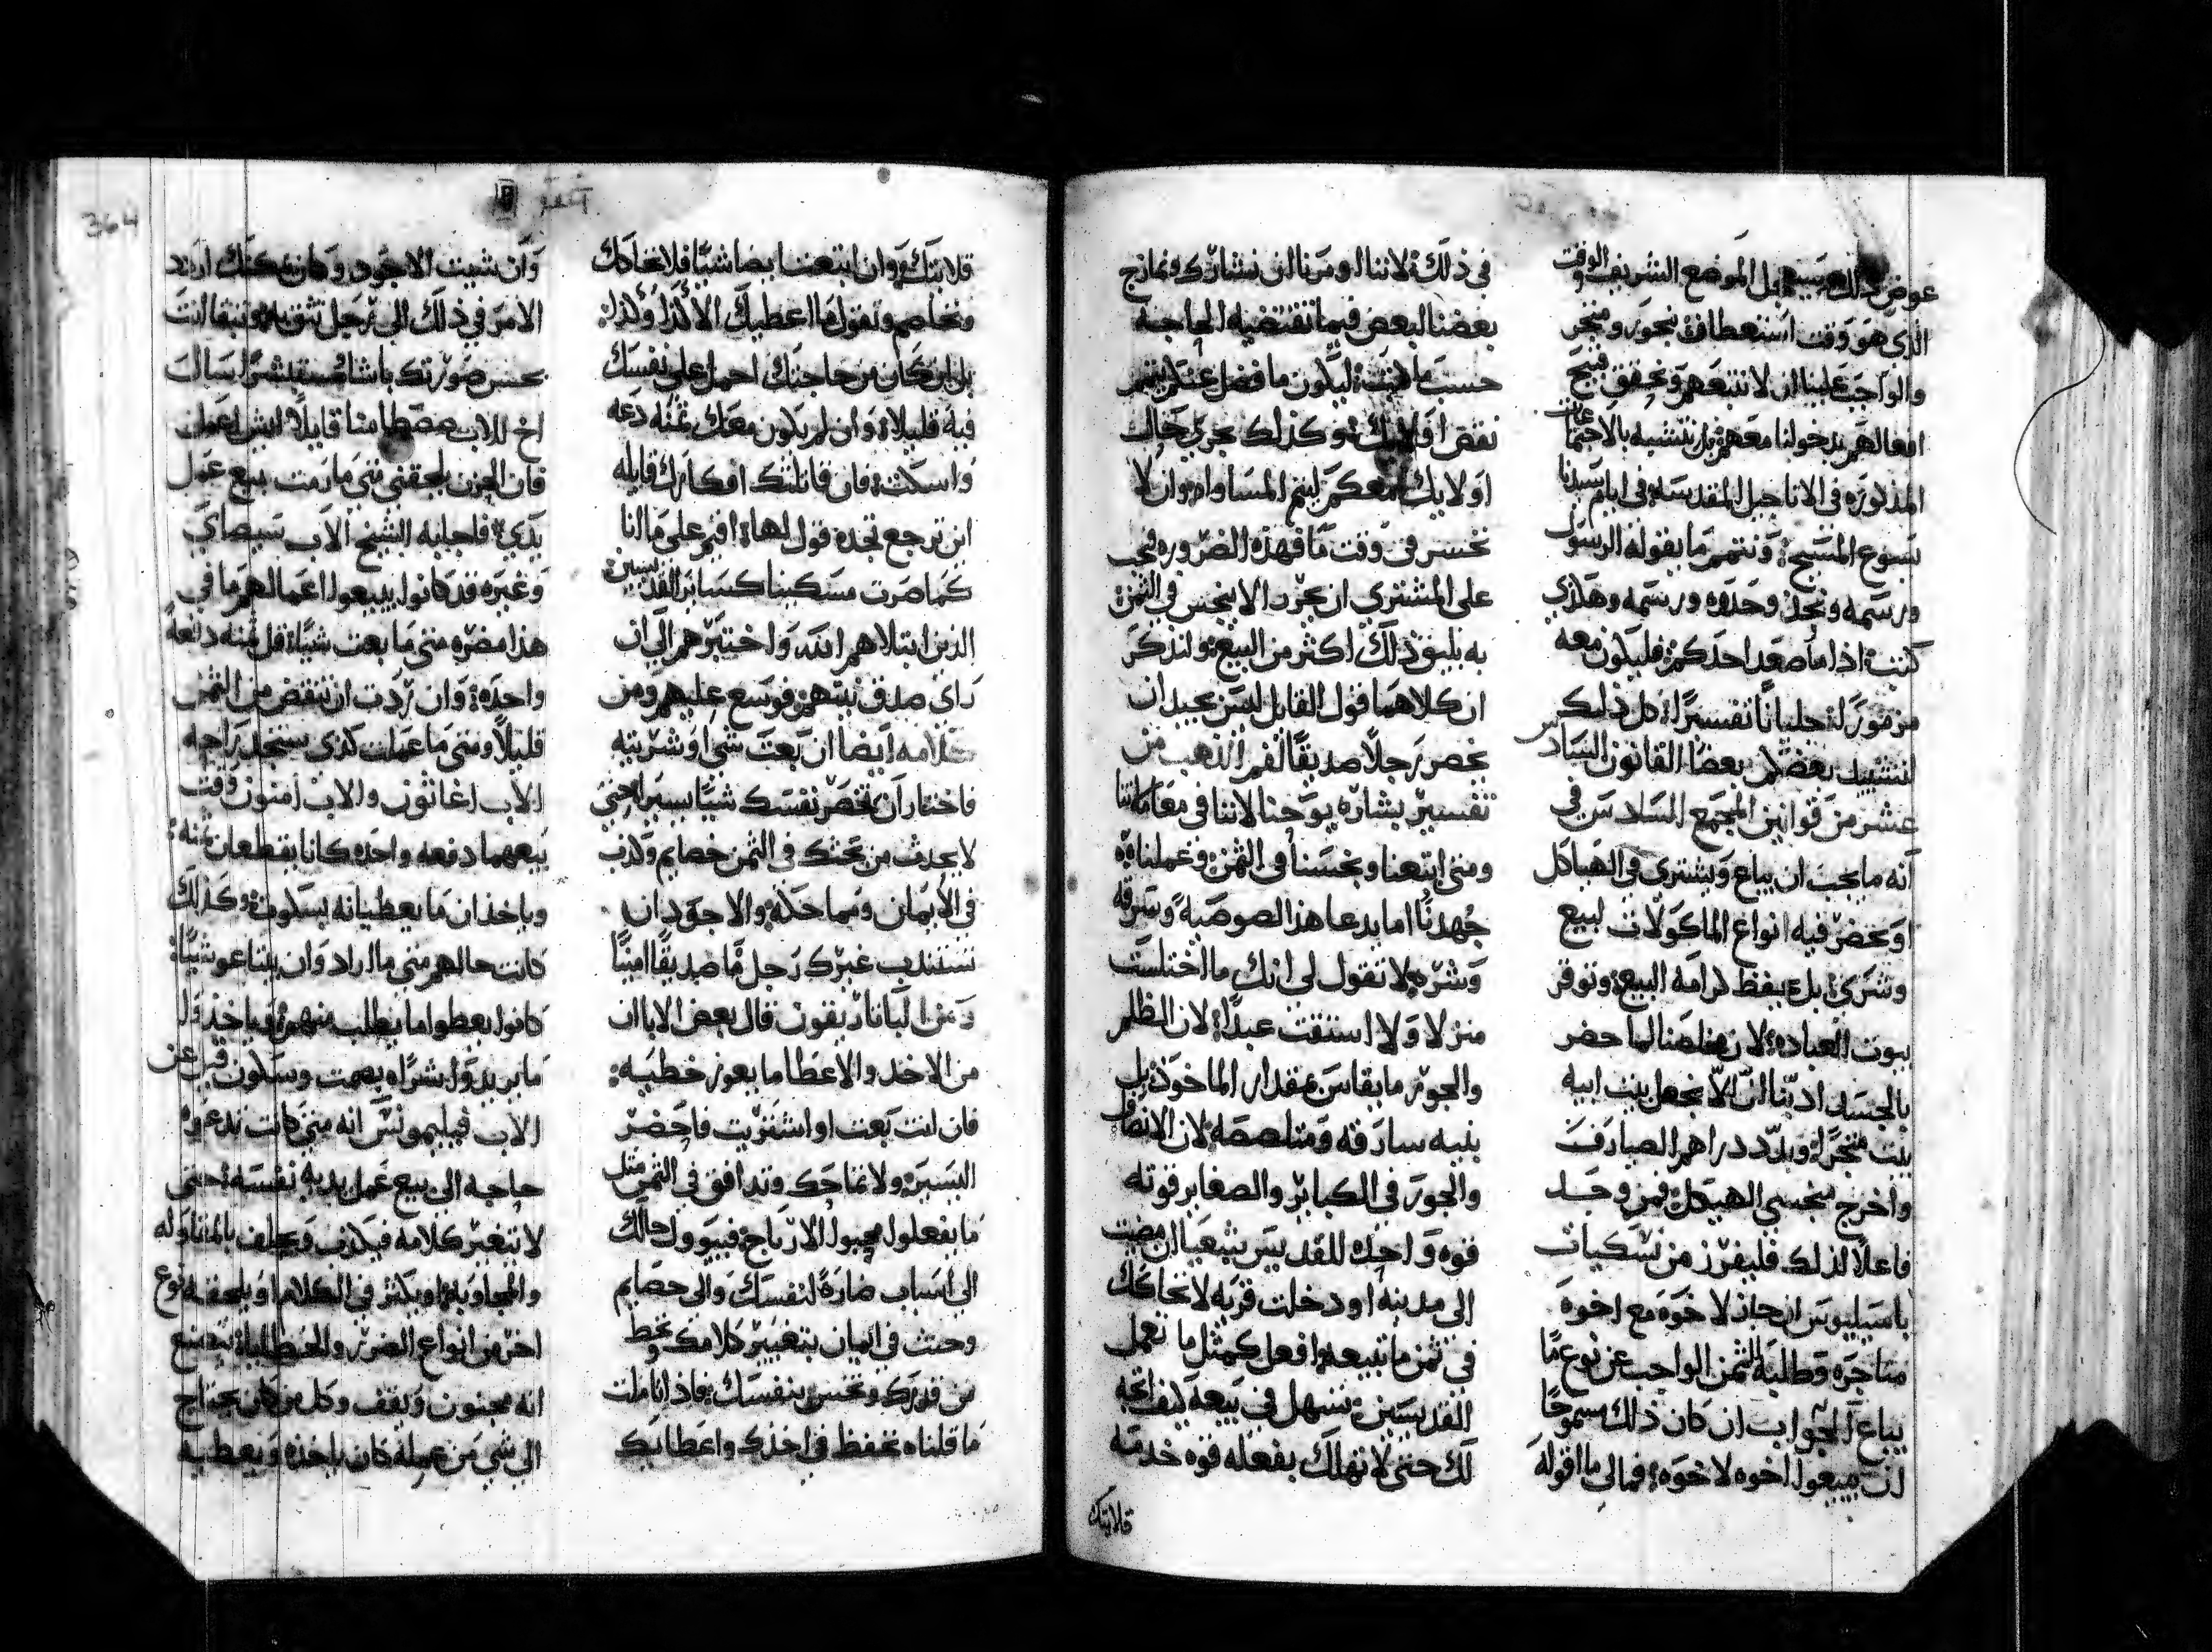 عوض ذلك بسبيل الموضع الشريف والوقت
الذي هو وقت استعطاف بنجور ومنجر
والواجب علينا ان لا نتبعهم ونحقق قبيح
افعالهم بدخولنا معهم بل نتشبه بالاجتماعات
المذكوره في الاناجيل المقدسه في ايام سيدنا
يسوع المسيح ونتمم ما يقوله الرسول
ورسمه ونجل وحدوه ورسمه وهكذي
كتب اذا ما صعد احدكم فليكون معه
مزمورًا لنجليانًا تفسيرًا كل ذلك
لتشييد بعضكم بعضا القانون السادس
عشر من قوانين المجمع السادس في
انه ما يجب ان يباع ويشتري في الهياكل
او يحضر فيه انواع الماكولات لبيع
وشرى بل يحفظ كرامة البيع وتوقر
بيوت العباده لان مخلصنا لما حضر
بالجسد ادبنا ان لا نجعل بيت ابيه
بيت متجرًا وبدد دراهم الصيارف
واخرج منجسي الهيكل فمن وجد
فاعلا لذلك فليفرز من نسكيات
باسيليوس ان جاز لاخوة مع اخوة
متاجره وطلبة الثمن الواجب عن نوع ما
يباع الجواب ان كان ذلك مسموحًا
ان يبيعوا اخوه لاخوه فمالى ما اقوله
في ذلك لاننا اومرنا ان نشارك ونمازج
بعضنا البعض فيما تقتضيه الحاجه
حسب ما كتب ليكون ما فضل عندكم يتمم
نقص اولايك وكذلك يجري حال
اولايك معكم ليتم المساواه وان لا
نخسر في وقت ما فهذه الضروره فيجب
على المشتري ان يحرر الا يبخس في الثمن
به يليق ذلك اكثر من البيع ولنذكر
ان كلاهما قول القايل ليس بجيد ان
يخصر رجلاً صديقًا لفم الذهب من
تفسير بشارة يوحنا لاننا في معاملاتنا
ومتى ابتعنا وبخسنا في الثمن وعملنا
جهدنا اما يدعا هذا لصوصية وسرقه
وشره لا تقول لي انك ما اختلست
منزلا ولا استقت عبدًا لان الظلم
والجور ما يقاس بمقدار الماخوذ بل
بنيه سارقه ومتلصصه لان الانصاف
والجور في الكباير والصغاير قوته
قوه واحده للقديس يشعيا ان مضيت
الى مدينه او دخلت قريه لا تحاكك
في ثمن ما تبيعه افعل كمثل ما تعمل
القديسين تسهل في بيعه ليف انجه
لك حتى لا تهلك بفعله قوه خدمة
قلايتك
364
قلايتك وان ابتعت ايضا شيًا فلا تحادك
وتخاصم وتقول ما اعطيك الا كذا وكذا
بل ان كان من حاجتك احمل على نفسك
فيه قليلا وان لم يكون معك ثمنه دعه
واسكت فان قاتلتك افكارك قايله
اين ترجع تجده قول لها افيم على ما لنا
كما صرت مسكينا كساير القديسين
الذين ابتلاهم الله واختبرهم الى ان
راى صدق نيتهم فوسع عليهم ومن
كلامه ايضا ان بعت شي او شريته
فاختار ان تخصر نفسك شيًا يسيرا حتى
لا يحدث من بحثك في الثمن خصايم وكذب
في الايمان ومماحكه والاجود ان
تستندب غيرك رجل ما صديقًا امينًا
ومن الباناريقون قال بعض الابا ان
من الاخد والاعطا ما يعوز خطيه
فان انت بعت او اشتريت فاخضر
اليسير ولا تماحك وتدافق في الثمن مثل
ما يفعلوا محبوا الارباح فيوول حالك
الى اسباب ضارة لنفسك والى خصايم
وحنث في ايمان بتغيير كلامك وتخط
من قدرك وتخسر بنفسك فاذا تاملت
ما قلناه تحفظ في اخذك واعطايك
وان شيت الاجود وكان يمكنك اردد
الامر في ذلك الى رجل تثق به وتبقا انت
بحسن صورتك باشا مستبشرًا سال
اخ للاب صصطا متا قايلاً ايش اعمل
فان الحزن يلحقني متى ما رمت بيع عمل
يدي فاجابه الشيخ الاب سيصاي
وغيره قد كانوا يبيعوا اعمالهم ما في
هذا مضره متى ما بعت شيًا قل ثمنه دفعه
واحده وان اردت ان تنقض من الثمن
قليلاً ومتى ما عملت كذى ستجد راحه
الاب اغاثون والاب امنون وقت
بيعهما دفعه واحده كانا يقطعان ثمنه
وياخذان ما يعطيانه بسكوت وكذلك
كانت حالهم متى ما اراد وان يبتاعوا شيًا
كانوا يعطوا ما يطلب منهم وياخذوا
ما يريدوا شراه بصمت وسكون قيل عن
الاب فيليمونس انه متى كانت تدعوه
حاجه الى بيع عمل يديه نفسه حتى
لا يتغير كلامه فيكذب ويحلف بالمناوله
والمجاوبه او يكثر في الكلام او يلحقه نوع
اخر من انواع الضرر والخطايا يصنع
انه مجنون ويقف وكل من كان يحتاج
الى شي من عمله كان ياخذه ويعطيه